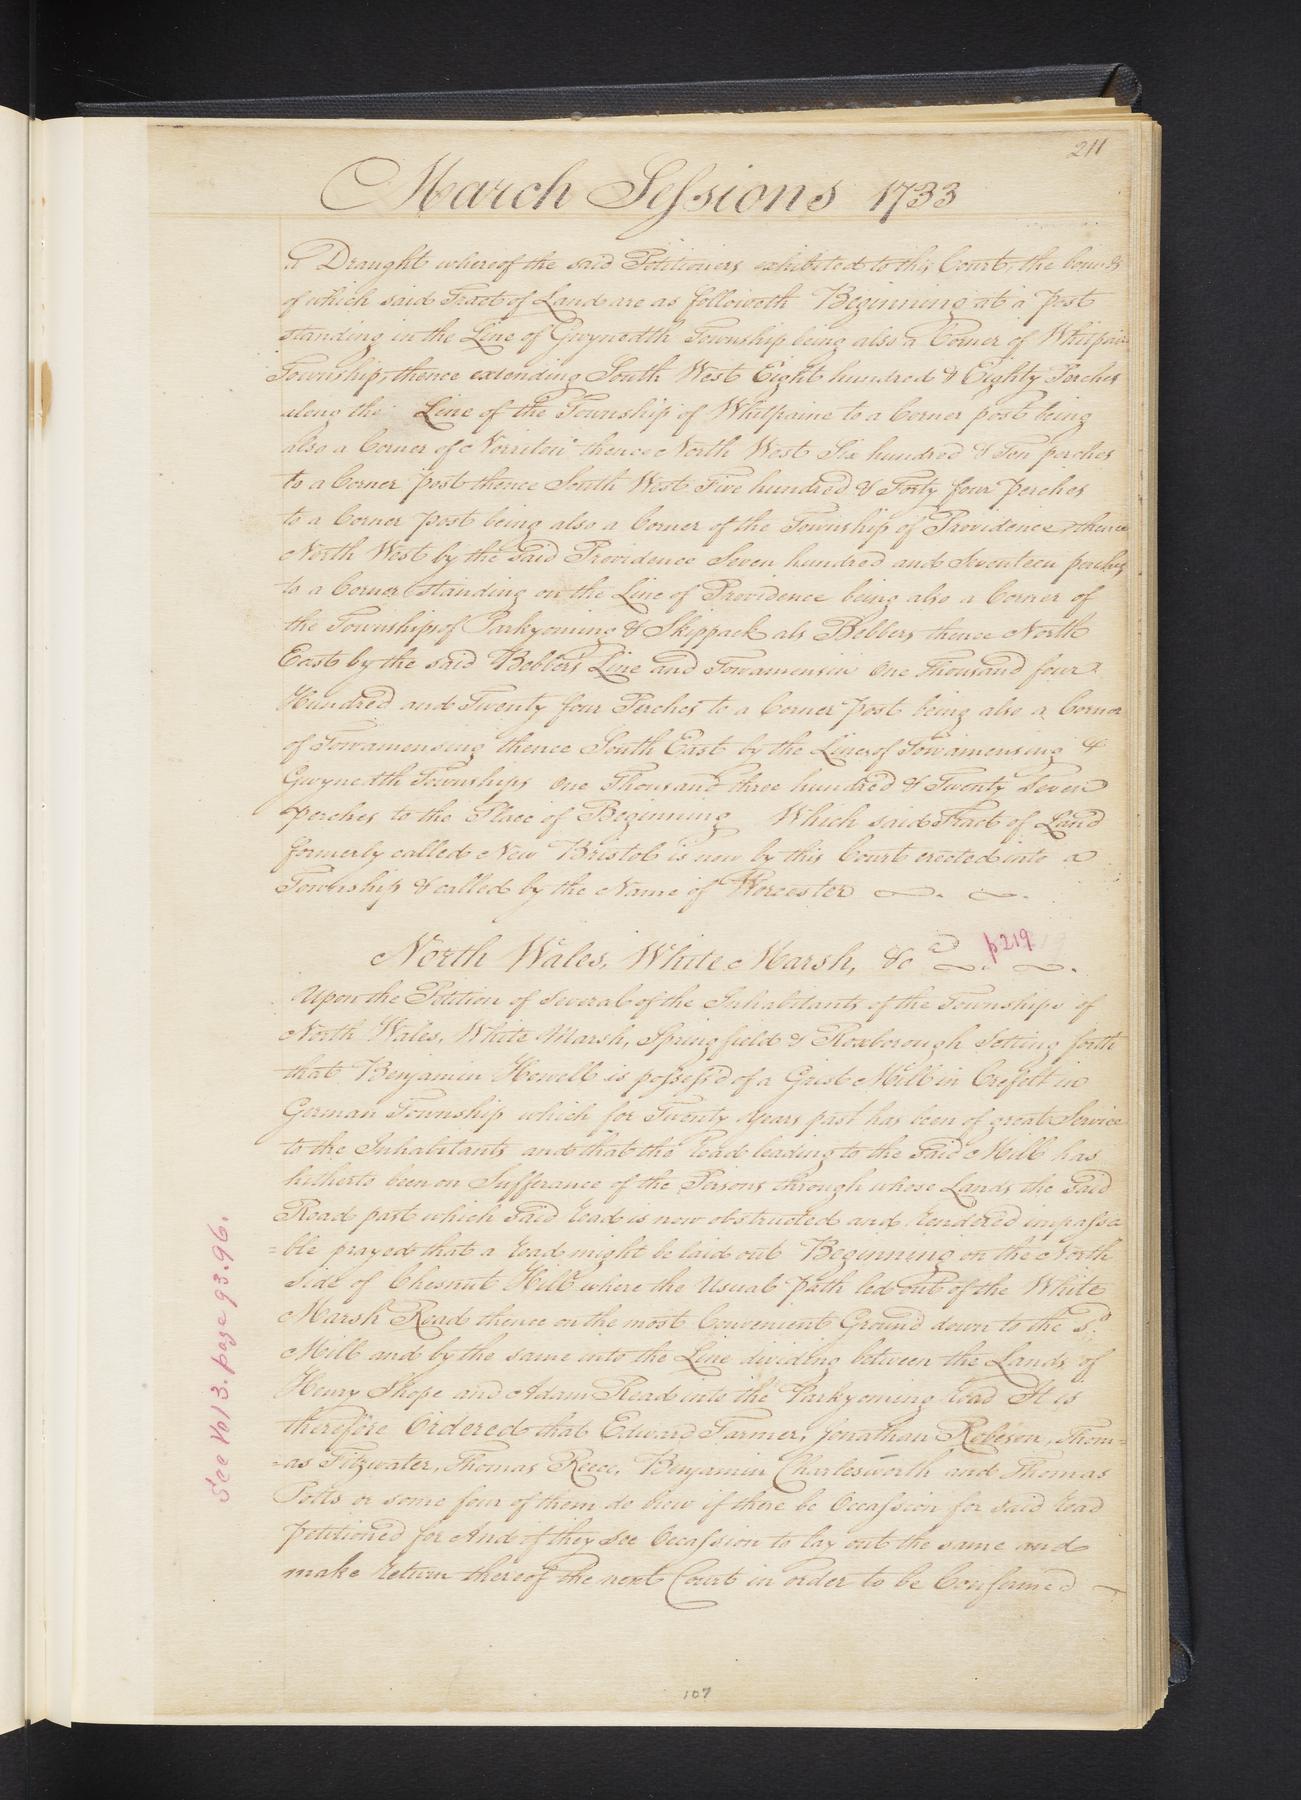 211
March Sessions 1733
a Draught whereof the said Petitioners exhibited to this Court, the bounds
of which said Tract of Land are as followeth Beginning at a post
standing in the Line of Gwynedth Township being also a Corner of Whitpain
Township, thence extending South West Eight hundred & Eighty Perches
along the Line of the Township of Whitpaine to a Corner post being
also a Corner of Norriton thence North West Six hundred & Ten perches
to a Corner post thence South West Five hundred & Forty four perches
to a Corner post being also a Corner of the Township of Providence, thence
North West by the said Providence Seven hundred and Seventeen perches
to a Corner standing on the Line of Providence being also a Corner of
the Townships of Parkyoming & Skippack als Bebbers thence North
East by the said Bebbers Line and Towamensin One Thousand four
Hundred and Twenty four Perches to a Corner post being also a Corner
of Towamensing thence South East by the Lines of Towamensing &
Gwynedth Townships One Thousand three hundred & Twenty Seven
perches to the Place of Beginning Which said Tract of Land
formerly called New Bristol is now by this Court erected into a
Township & called by the Name of Worcester
North Wales, White Marsh, &c p219
Upon the Petition of Several of the Inhabitants of the Townships of
North Wales, White Marsh, Springfield & Roxborough Setting forth
that Benjamin Howell is possess'd of a Grist Mill in Crefelt in
German Township which for Twenty years past has been of great Service
to the Inhabitants and that the road leading to the said Mill has
hitherto been on Sufferance of the Persons through whose Lands the said
Road past which said road is now obstructed and rendered impassa
=ble prayed that a road might be laid out Beginning on the North
side of Chesnut Hill where the Usual path led out of the White
Marsh Road thence on the most Convenient Ground down to the sd.
Mill and by the same into the Line dividing between the Lands of
Henry Shope and Adam Read into the Parkyoming road It is
therefore Ordered that Edward Farmer, Jonathan Robeson, Thom=
=as Fitzwater, Thomas Reece, Benjamin Charlesworth and Thomas
Potts or some four of them do view if there be Occassion for said road
petitioned for And if they see Occassion to lay out the same and
make return thereof the next Court in order to be Confirmed
See Vol 3. page 93.96.
107